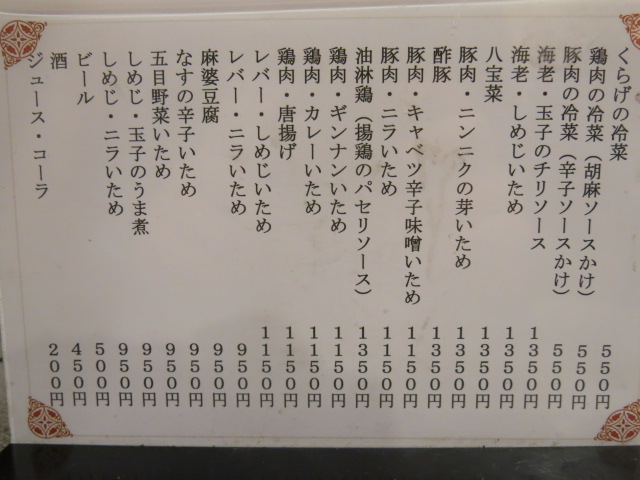 くらげの冷菜 550円
鶏肉の冷菜（胡麻ソースかけ） 550円
豚肉の冷菜（辛子ソースかけ） 550円
海老・玉子のチリソース 1350円
海老・しめじいため 1350円
八宝菜 1350円
豚肉・ニンニクの芽いため 1350円
酢豚 1350円
豚肉・キャベツ辛子味噌いため 1150円
豚肉・ニラいため 1150円
油淋鶏（揚鶏のパセリソース） 1350円
鶏肉・ギンナンいため 1150円
鶏肉・カレーいため 1150円
鶏肉・唐揚げ 1150円
レバー・しめじいため 1150円
レバー・ニラいため 950円
麻婆豆腐 950円
なすの辛子いため 950円
五目野菜いため 950円
しめじ・玉子のうま煮 950円
しめじ・ニラいため 950円
ビール 500円
酒 450円
ジュース・コーラ 200円